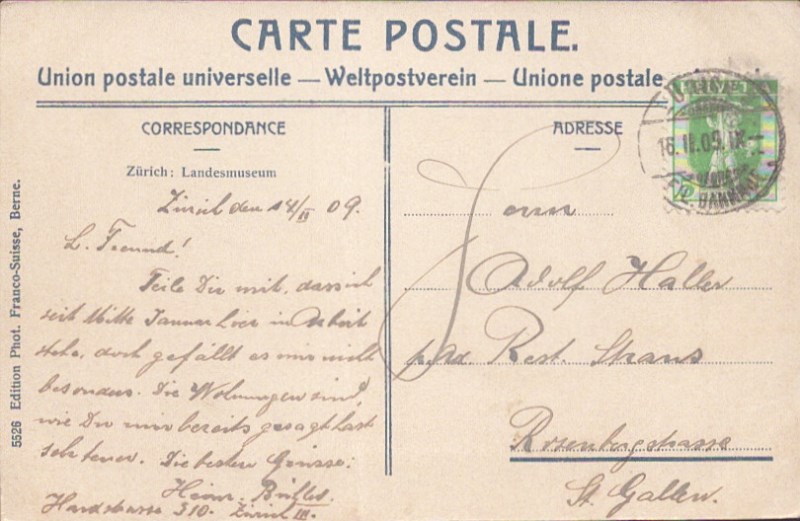 CARTE POSTALE.
Union postale universelle — Weltpostverein — Unione postale
CORRESPONDANCE
Zürich: Landesmuseum
Zürich den 14/II 09.
L. Freund!
Teile Dir mit, dass ich
seit Mitte Januar hier in Arbeit
stehe, doch gefällt es mir nicht
besonders. Die Wohnungen sind,
wie Du mir bereits gesagt hast
sehr teuer. Die besten Grüsse:
Heinr.
Hardstrasse 310. Zürich III.
ADRESSE
Herrn
Adolf Haller
p. Ad. Rest. Strauss
Rosenbergstrasse
St. Gallen.
5526 Edition Phot. Franco-Suisse, Berne.
HELVETIA
16.II.09.IX
BAHNHOF